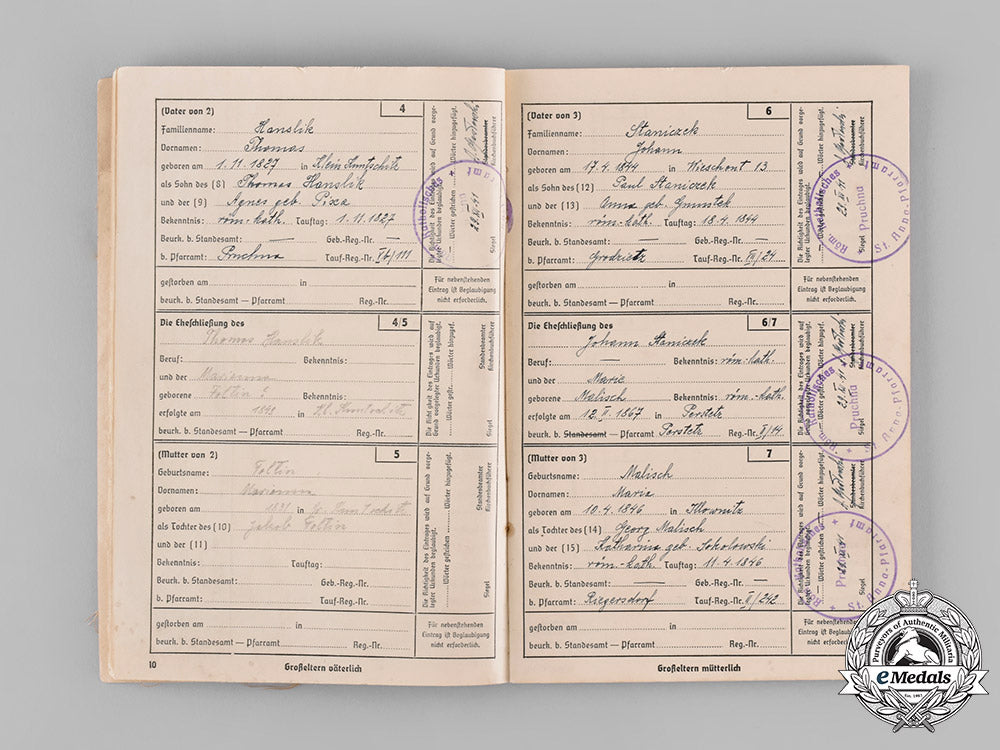 (Vater von 2) 4
Familienname: Hanslik
Vornamen: Thomas
geboren am 1.11.1827 in Klein Kuntschitz
als Sohn des (8) Thomas Hanslik
und der (9) Agnes geb. Pixa
Bekenntnis: röm.-kath. Tauftag: 1.11.1827
Beurk. b. Standesamt — Geb.-Reg.-Nr. —
b. Pfarramt: Pruchna Tauf-Reg.-Nr.
gestorben am in
beurk. b. Standesamt — Pfarramt Reg.-Nr.
Die Richtigkeit des Eintrages wird auf Grund vorgelegter Urkunden beglaubigt.
Wörter gestrichen Wörter hinzugefügt.
Siegel
Standesbeamter
Kirchenbuchführer
Katholisches
Für nebenstehenden
Eintrag ist Beglaubigung
nicht erforderlich.
Die Eheschließung des 4/5
Thomas Hanslik
Beruf: Bekenntnis:
und der Marianna
geborene Foltin Bekenntnis:
erfolgte am in
beurk. b. Standesamt — Pfarramt Reg.-Nr.
Die Richtigkeit des Eintrages wird auf
Grund vorgelegter Urkunden beglaubigt.
Wörter gestr. Wörter hinzugef.
Siegel
Standesbeamter
Kirchenbuchführer
(Mutter von 2) 5
Geburtsname: Foltin
Vornamen: Marianna
geboren am in
als Tochter des (10) Jakob Foltin
und der (11)
Bekenntnis: Tauftag:
Beurk. b. Standesamt: Geb.-Reg.-Nr.
b. Pfarramt: Tauf-Reg.-Nr.
gestorben am in
beurk. b. Standesamt — Pfarramt Reg.-Nr.
Die Richtigkeit des Eintrages wird auf Grund vorgelegter Urkunden beglaubigt.
Wörter gestrichen Wörter hinzugefügt.
Siegel
Standesbeamter
Kirchenbuchführer
Für nebenstehenden
Eintrag ist Beglaubigung
nicht erforderlich.
10 Großeltern väterlich
(Vater von 3) 6
Familienname: Staniczek
Vornamen: Johann
geboren am 17.4.1844 in Wieschont 13
als Sohn des (12) Paul Staniczek
und der (13) Anna geb.
Bekenntnis: röm.-kath. Tauftag: 18.4.1844
Beurk. b. Standesamt — Geb.-Reg.-Nr. —
b. Pfarramt: Grodzietz Tauf-Reg.-Nr. III/24
gestorben am in
beurk. b. Standesamt — Pfarramt Reg.-Nr.
Siegel
Röm. Katholisches
St. Anna-Pfarramt
Pruchna
Für nebenstehenden
Eintrag ist Beglaubigung
nicht erforderlich.
Die Eheschließung des 6/7
Johann Staniczek
Beruf: — Bekenntnis: röm.-kath.
und der Marie
geborene Malisch Bekenntnis: röm.-kath.
erfolgte am 12.V.1867 in Perstetz
beurk. b. Standesamt — Pfarramt Perstetz Reg.-Nr. V/14
Siegel
Röm. Katholisches
St. Anna-Pfarramt
Pruchna
(Mutter von 3) 7
Geburtsname: Malisch
Vornamen: Maria
geboren am 10.4.1846 in Illownitz
als Tochter des (14) Georg Malisch
und der (15) Katharina geb. Sokolowski
Bekenntnis: röm.-kath. Tauftag: 11.4.1846
Beurk. b. Standesamt: — Geb.-Reg.-Nr. —
b. Pfarramt: Riegersdorf Tauf-Reg.-Nr. II/242
gestorben am in
beurk. b. Standesamt — Pfarramt Reg.-Nr.
Siegel
Katholisches
St. Anna-Pfarramt
Für nebenstehenden
Eintrag ist Beglaubigung
nicht erforderlich.
Großeltern mütterlich
Purveyors of Authentic Militaria
eMedals
Est. 1967